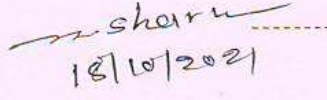 n. sharu
18/10/2021